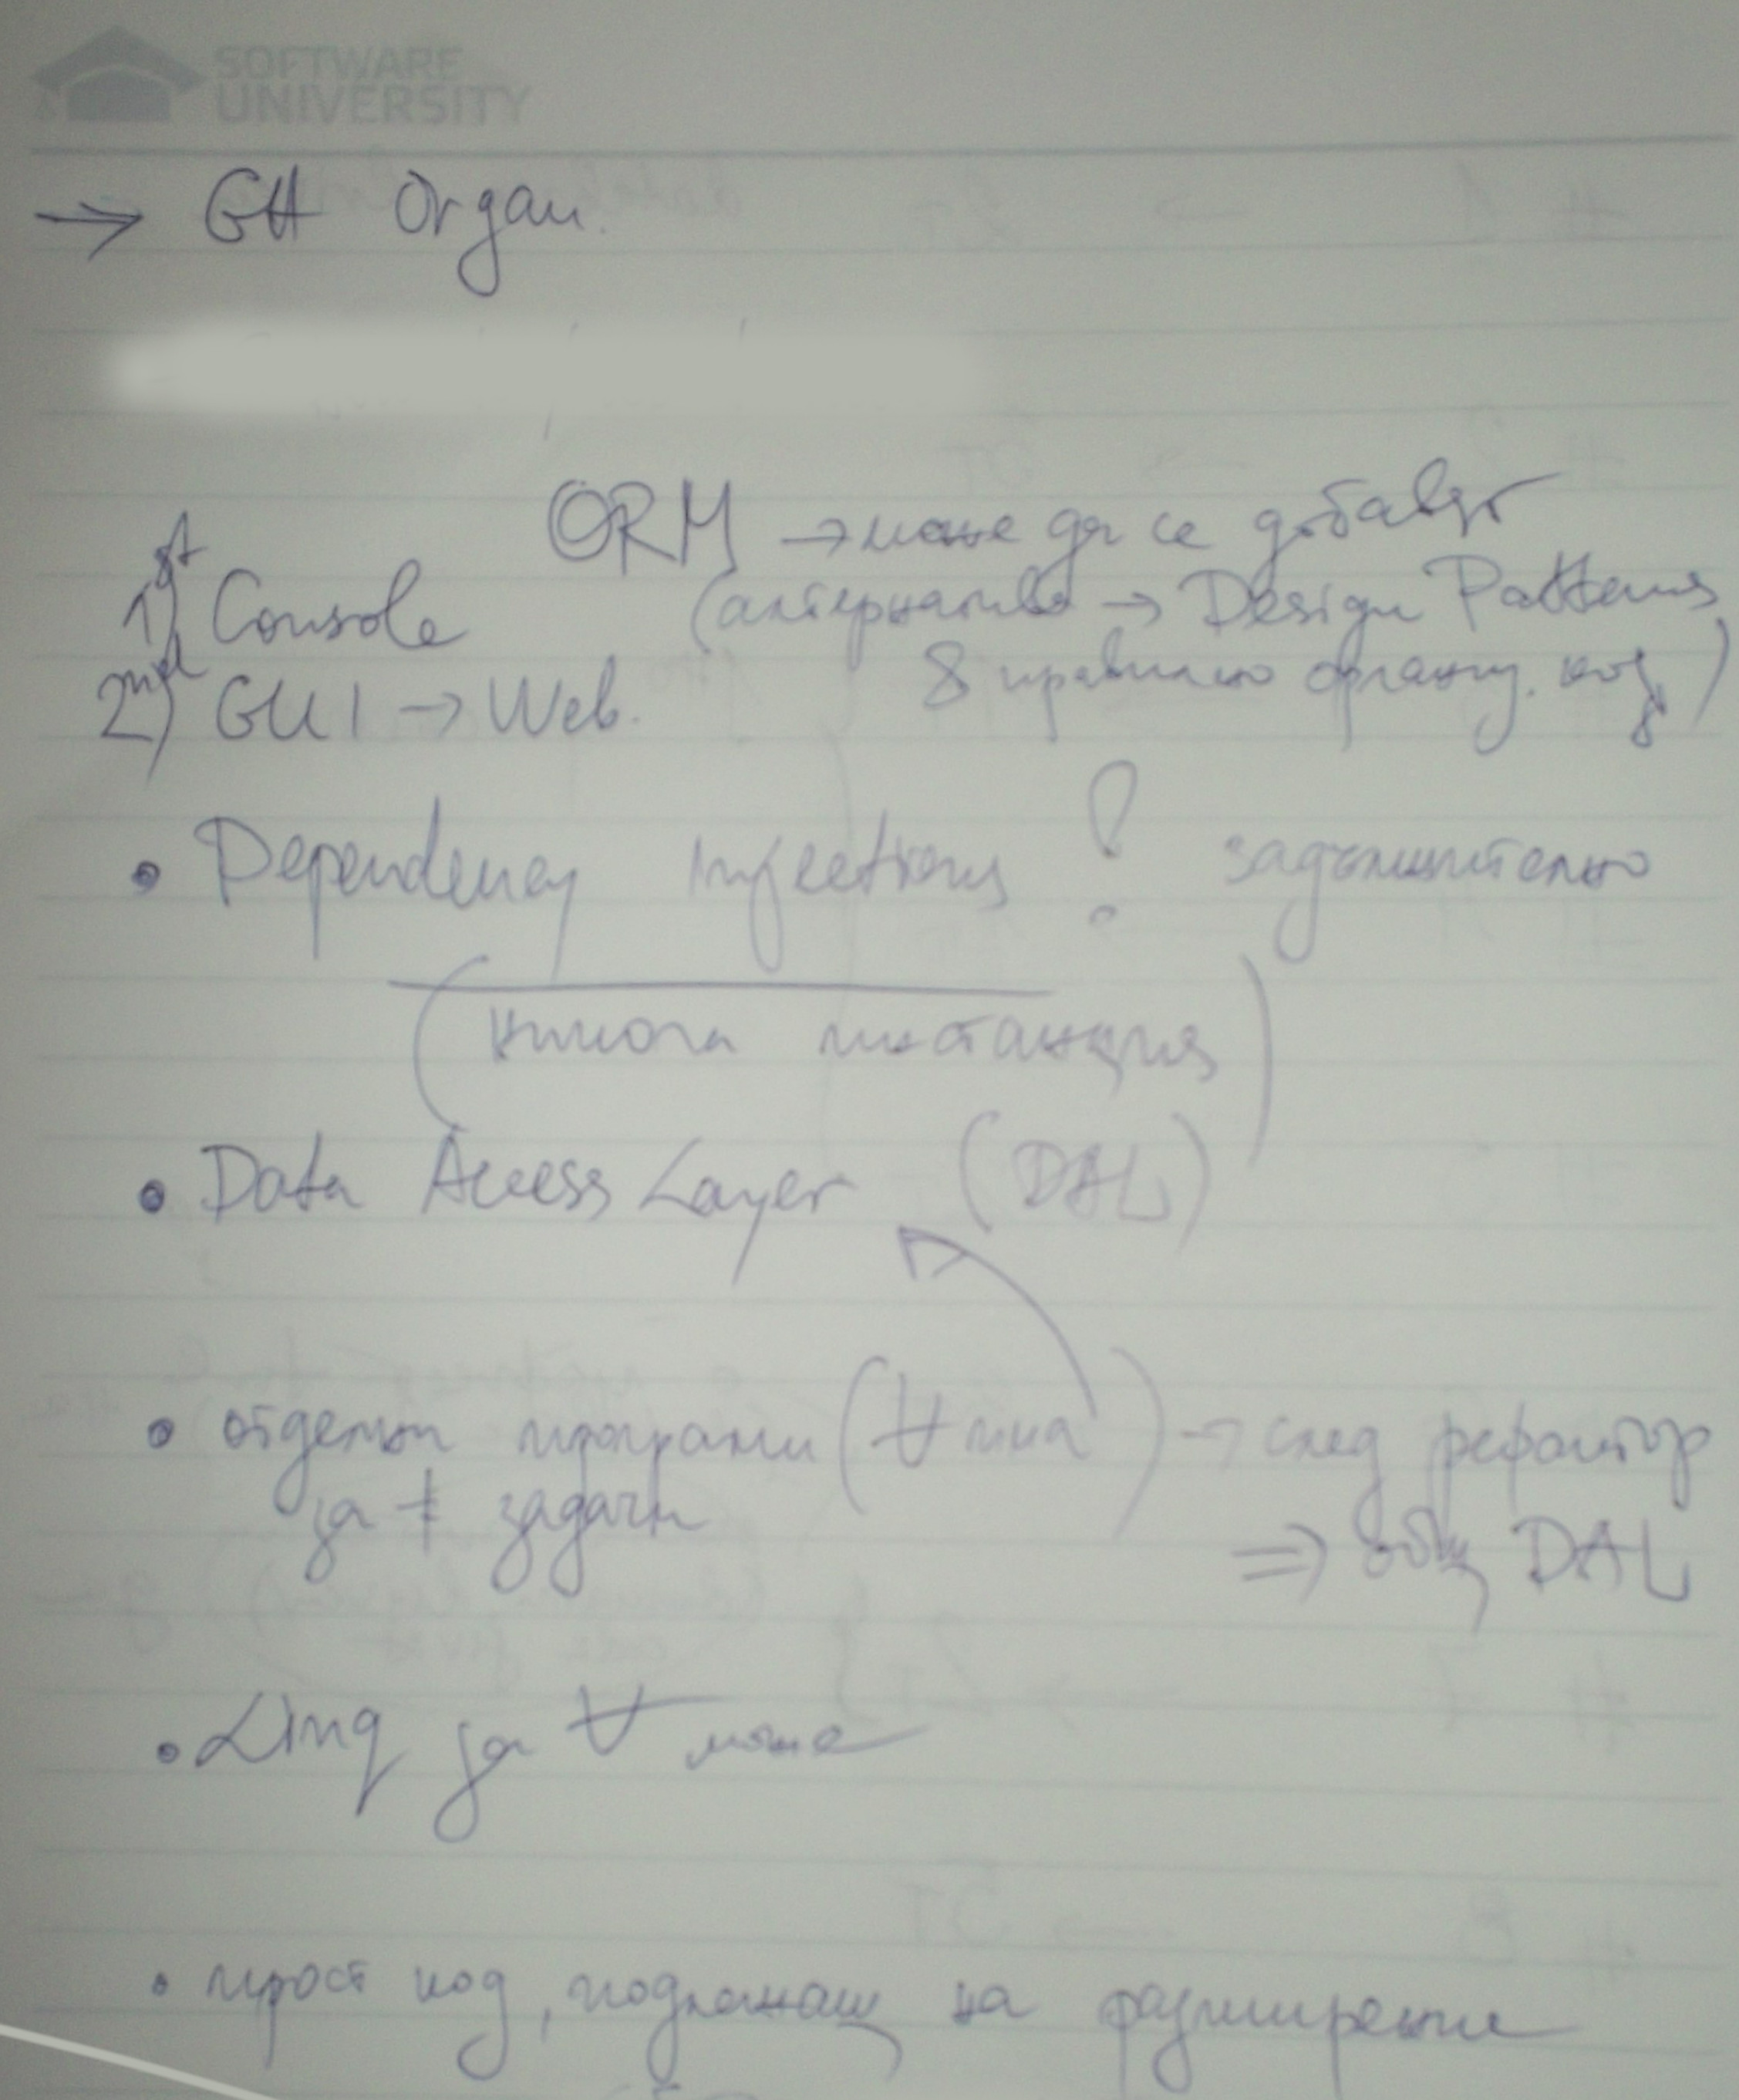 SOFTWARE
UNIVERSITY
→ GH Organ.
ORM → може да се добавят
1st) Console (алтернатива → Design Patterns
& правилно организ. код)
2nd) GUI → Web.
• Dependency Injections ! задължително
(никога инстанция)
• Data Access Layer (DAL)
• отделни програми (∀ има) → след рефактор
за ≠ задачи
⇒ общ DAL
• Linq за ∀ може
• прост код, подлежащ на разширение